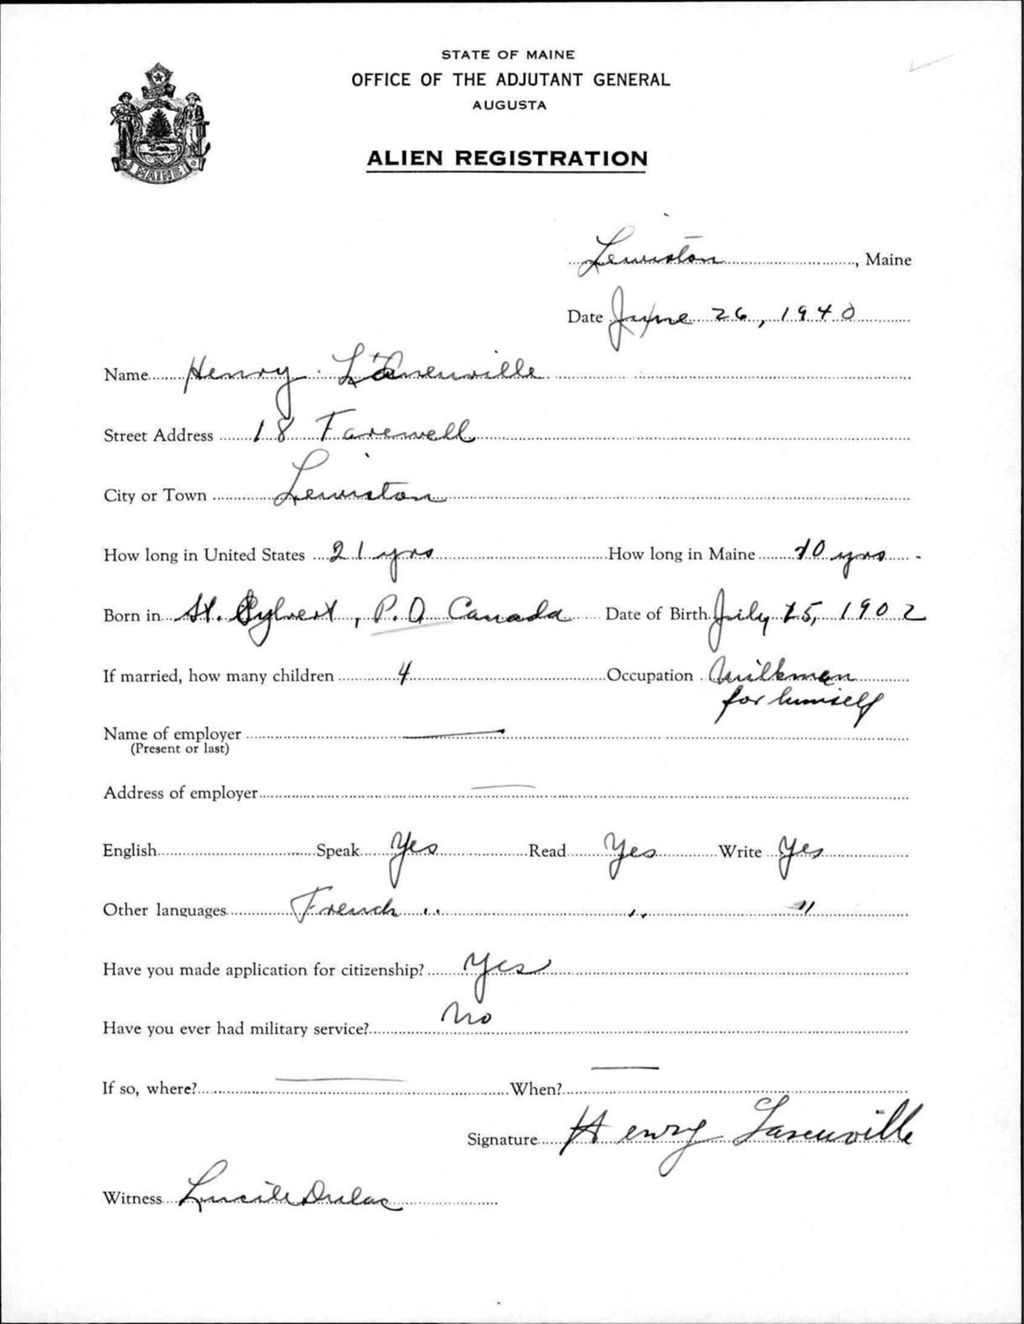 STATE OF MAINE
OFFICE OF THE ADJUTANT GENERAL
AUGUSTA
MAINE
ALIEN REGISTRATION
Lewiston, Maine
Date June 26, 1940
Name Henry
Street Address 18 Farewell
City or Town Lewiston
How long in United States 21 yrs How long in Maine 10 yrs
Born in St. Sylvest, P.Q Canada Date of Birth July 15, 1902
If married, how many children 4 Occupation Milkman
for himself
Name of employer
(Present or last)
Address of employer
English Speak Yes Read Yes Write Yes
Other languages French " " "
Have you made application for citizenship? Yes
Have you ever had military service? No
If so, where? When?
Signature Henry
Witness Lucile Dulac